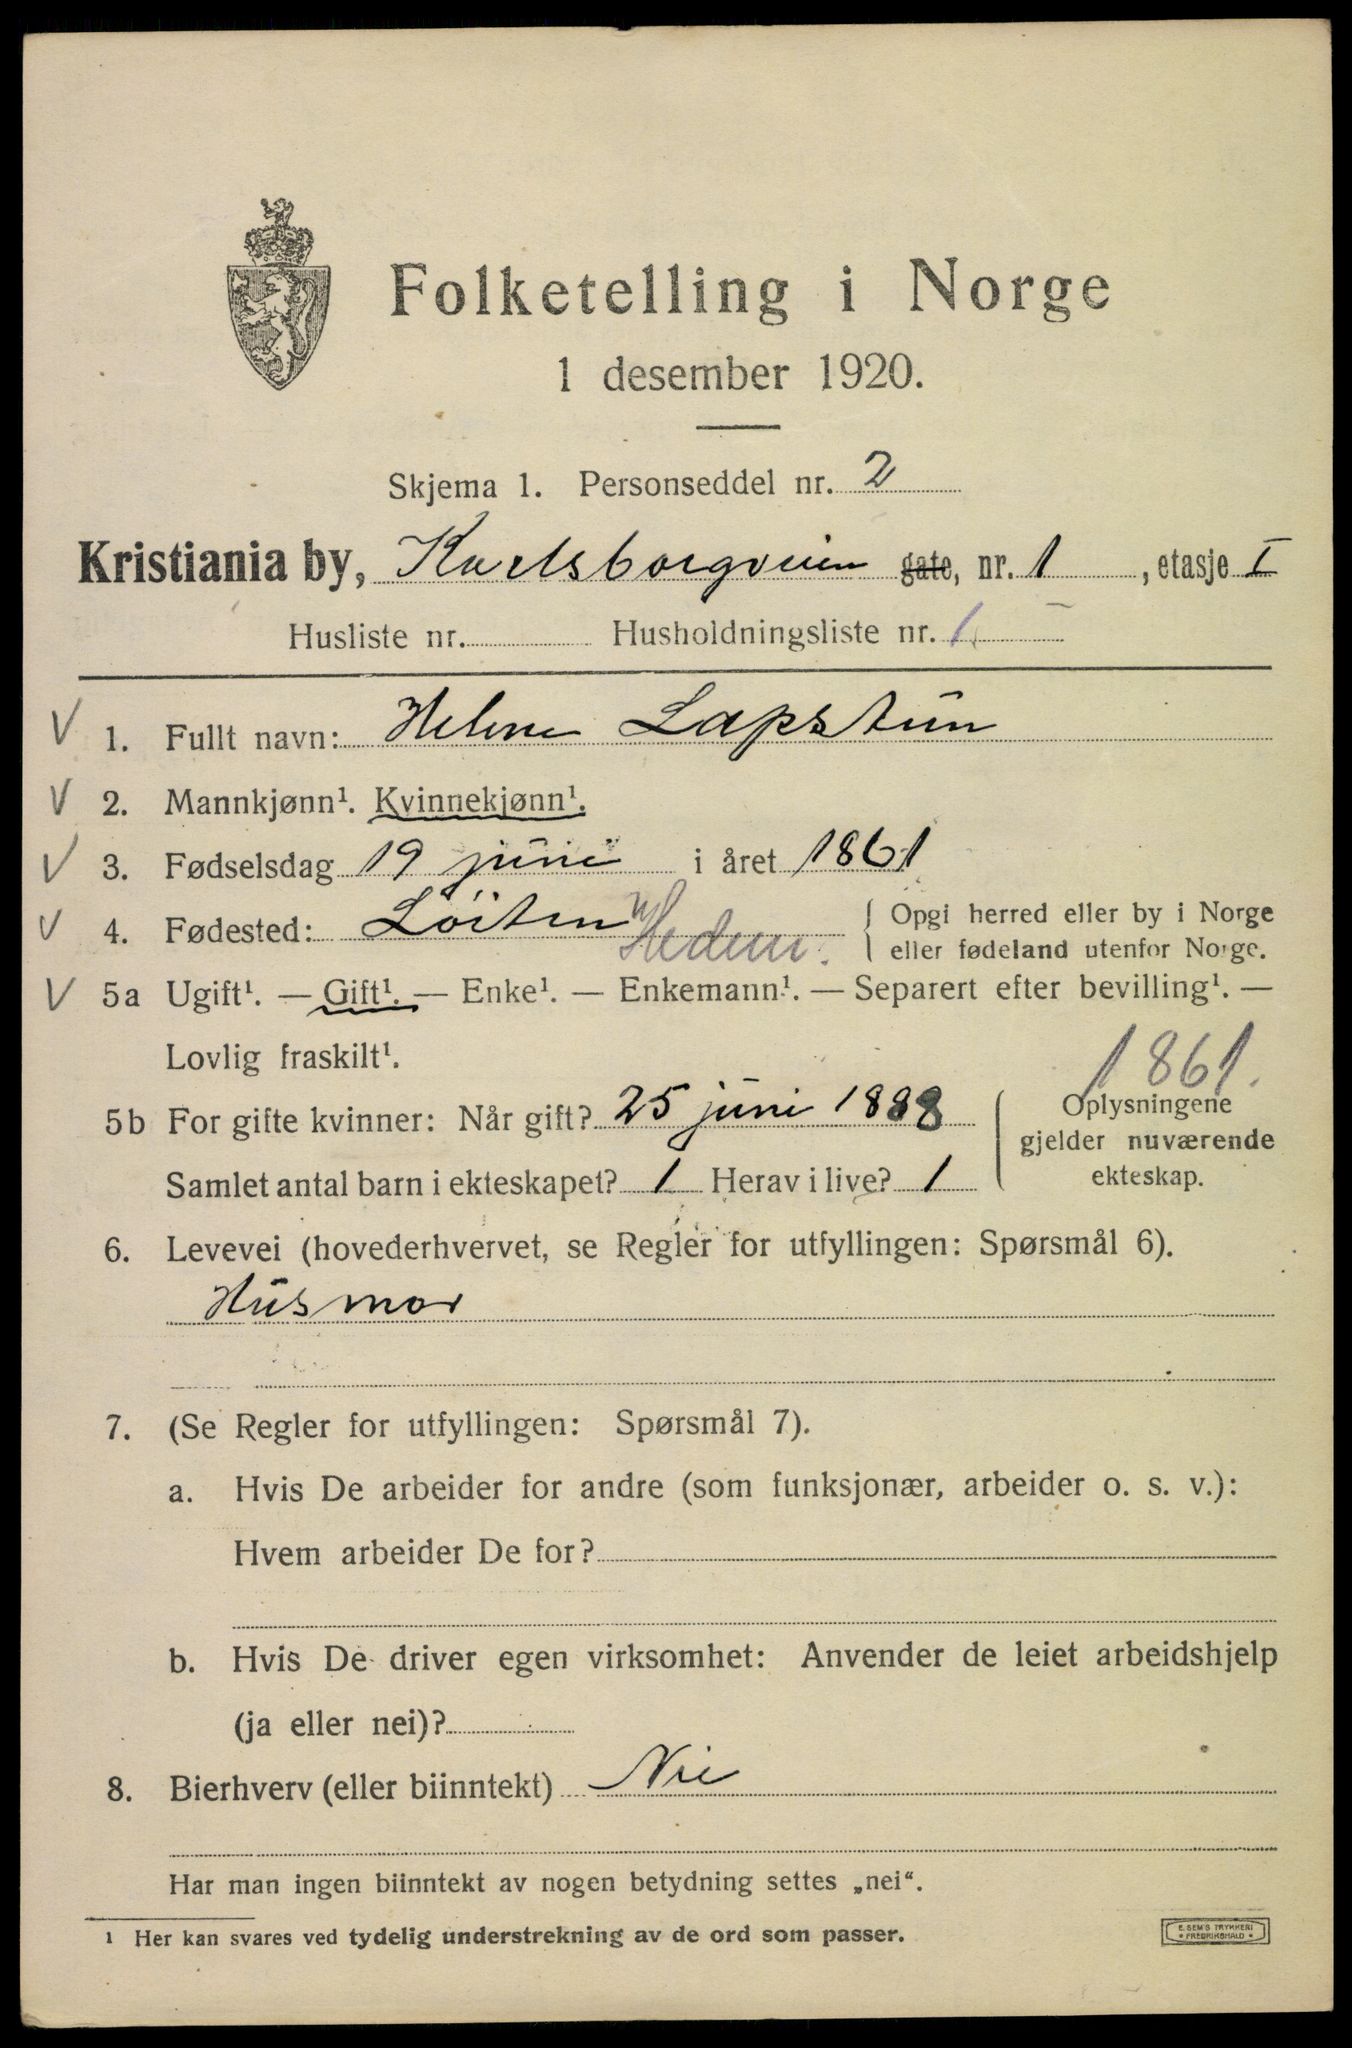 Folketelling i Norge
1 desember 1920.
Skjema 1. Personseddel nr. 2
Kristiania by, Karlsborgveien gate, nr. 1, etasje I
Husliste nr. Husholdningsliste nr. 1
V 1. Fullt navn: Helene Lapstun
V 2. Mannkjønn¹. Kvinnekjønn¹.
V 3. Fødselsdag 19 juni i året 1861
V 4. Fødested: Löiten Hedm. { Opgi herred eller by i Norge
eller fødeland utenfor Norge.
V 5a Ugift¹. — Gift¹. — Enke¹. — Enkemann¹. — Separert efter bevilling¹. —
Lovlig fraskilt¹.
1861.
5b For gifte kvinner: Når gift? 25 juni 1888
Samlet antal barn i ekteskapet? 1 Herav i live? 1
{ Oplysningene
gjelder nuværende
ekteskap.
6. Levevei (hovederhvervet, se Regler for utfyllingen: Spørsmål 6).
Husmor
7. (Se Regler for utfyllingen: Spørsmål 7).
a. Hvis De arbeider for andre (som funksjonær, arbeider o. s. v.):
Hvem arbeider De for?
b. Hvis De driver egen virksomhet: Anvender de leiet arbeidshjelp
(ja eller nei)?
8. Bierhverv (eller biinntekt) Nei
Har man ingen biinntekt av nogen betydning settes „nei“.
¹ Her kan svares ved tydelig understrekning av de ord som passer.
E. SEM'S TRYKKERI
• FREDRIKSHALD •